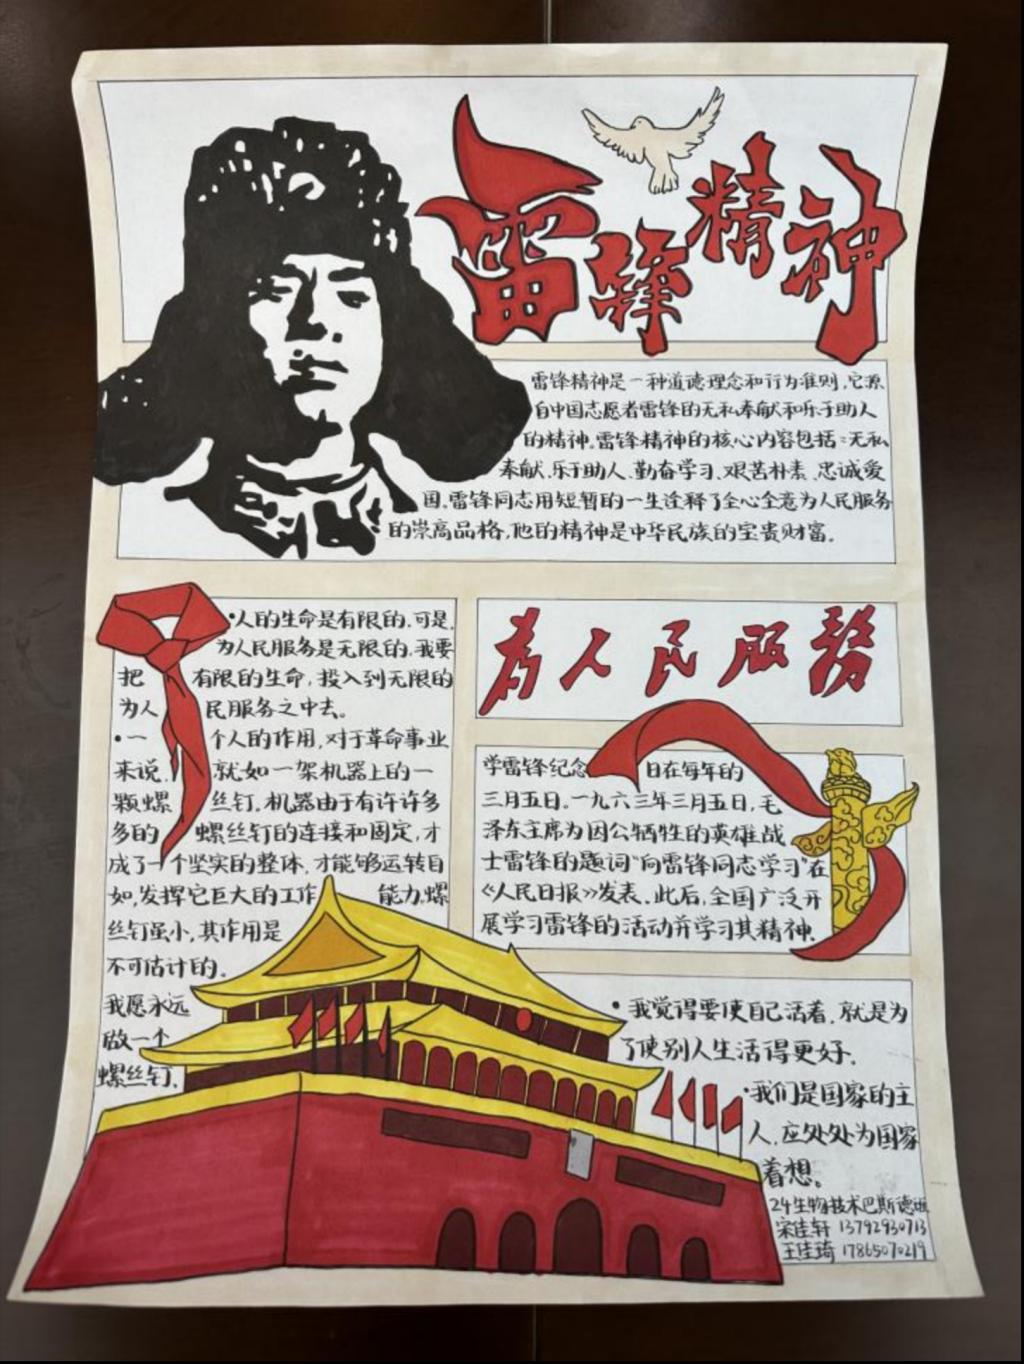 雷锋精神
雷锋精神是一种道德理念和行为准则,它源
自中国志愿者雷锋的无私奉献和乐于助人
的精神。雷锋精神的核心内容包括:无私
奉献、乐于助人、勤奋学习、艰苦朴素、忠诚爱
国。雷锋同志用短暂的一生诠释了全心全意为人民服务
的崇高品格,他的精神是中华民族的宝贵财富。
·人的生命是有限的,可是,
为人民服务是无限的,我要
把有限的生命,投入到无限的
为人民服务之中去。
·一个人的作用,对于革命事业
来说,就如一架机器上的一
颗螺丝钉。机器由于有许许多
多的螺丝钉的连接和固定,才
成了一个坚实的整体,才能够运转自
如,发挥它巨大的工作能力,螺
丝钉虽小,其作用是
不可估计的。
我愿永远
做一个
螺丝钉。
為人民服務
学雷锋纪念日在每年的
三月五日。一九六三年三月五日,毛
泽东主席为因公牺牲的英雄战
士雷锋的题词“向雷锋同志学习”在
《人民日报》发表。此后,全国广泛开
展学习雷锋的活动并学习其精神。
·我觉得要使自己活着,就是为
了使别人生活得更好。
·我们是国家的主
人,应处处为国家
着想。
24生物技术巴斯德班
宋佳轩 13792930713
王佳琦 17865070219